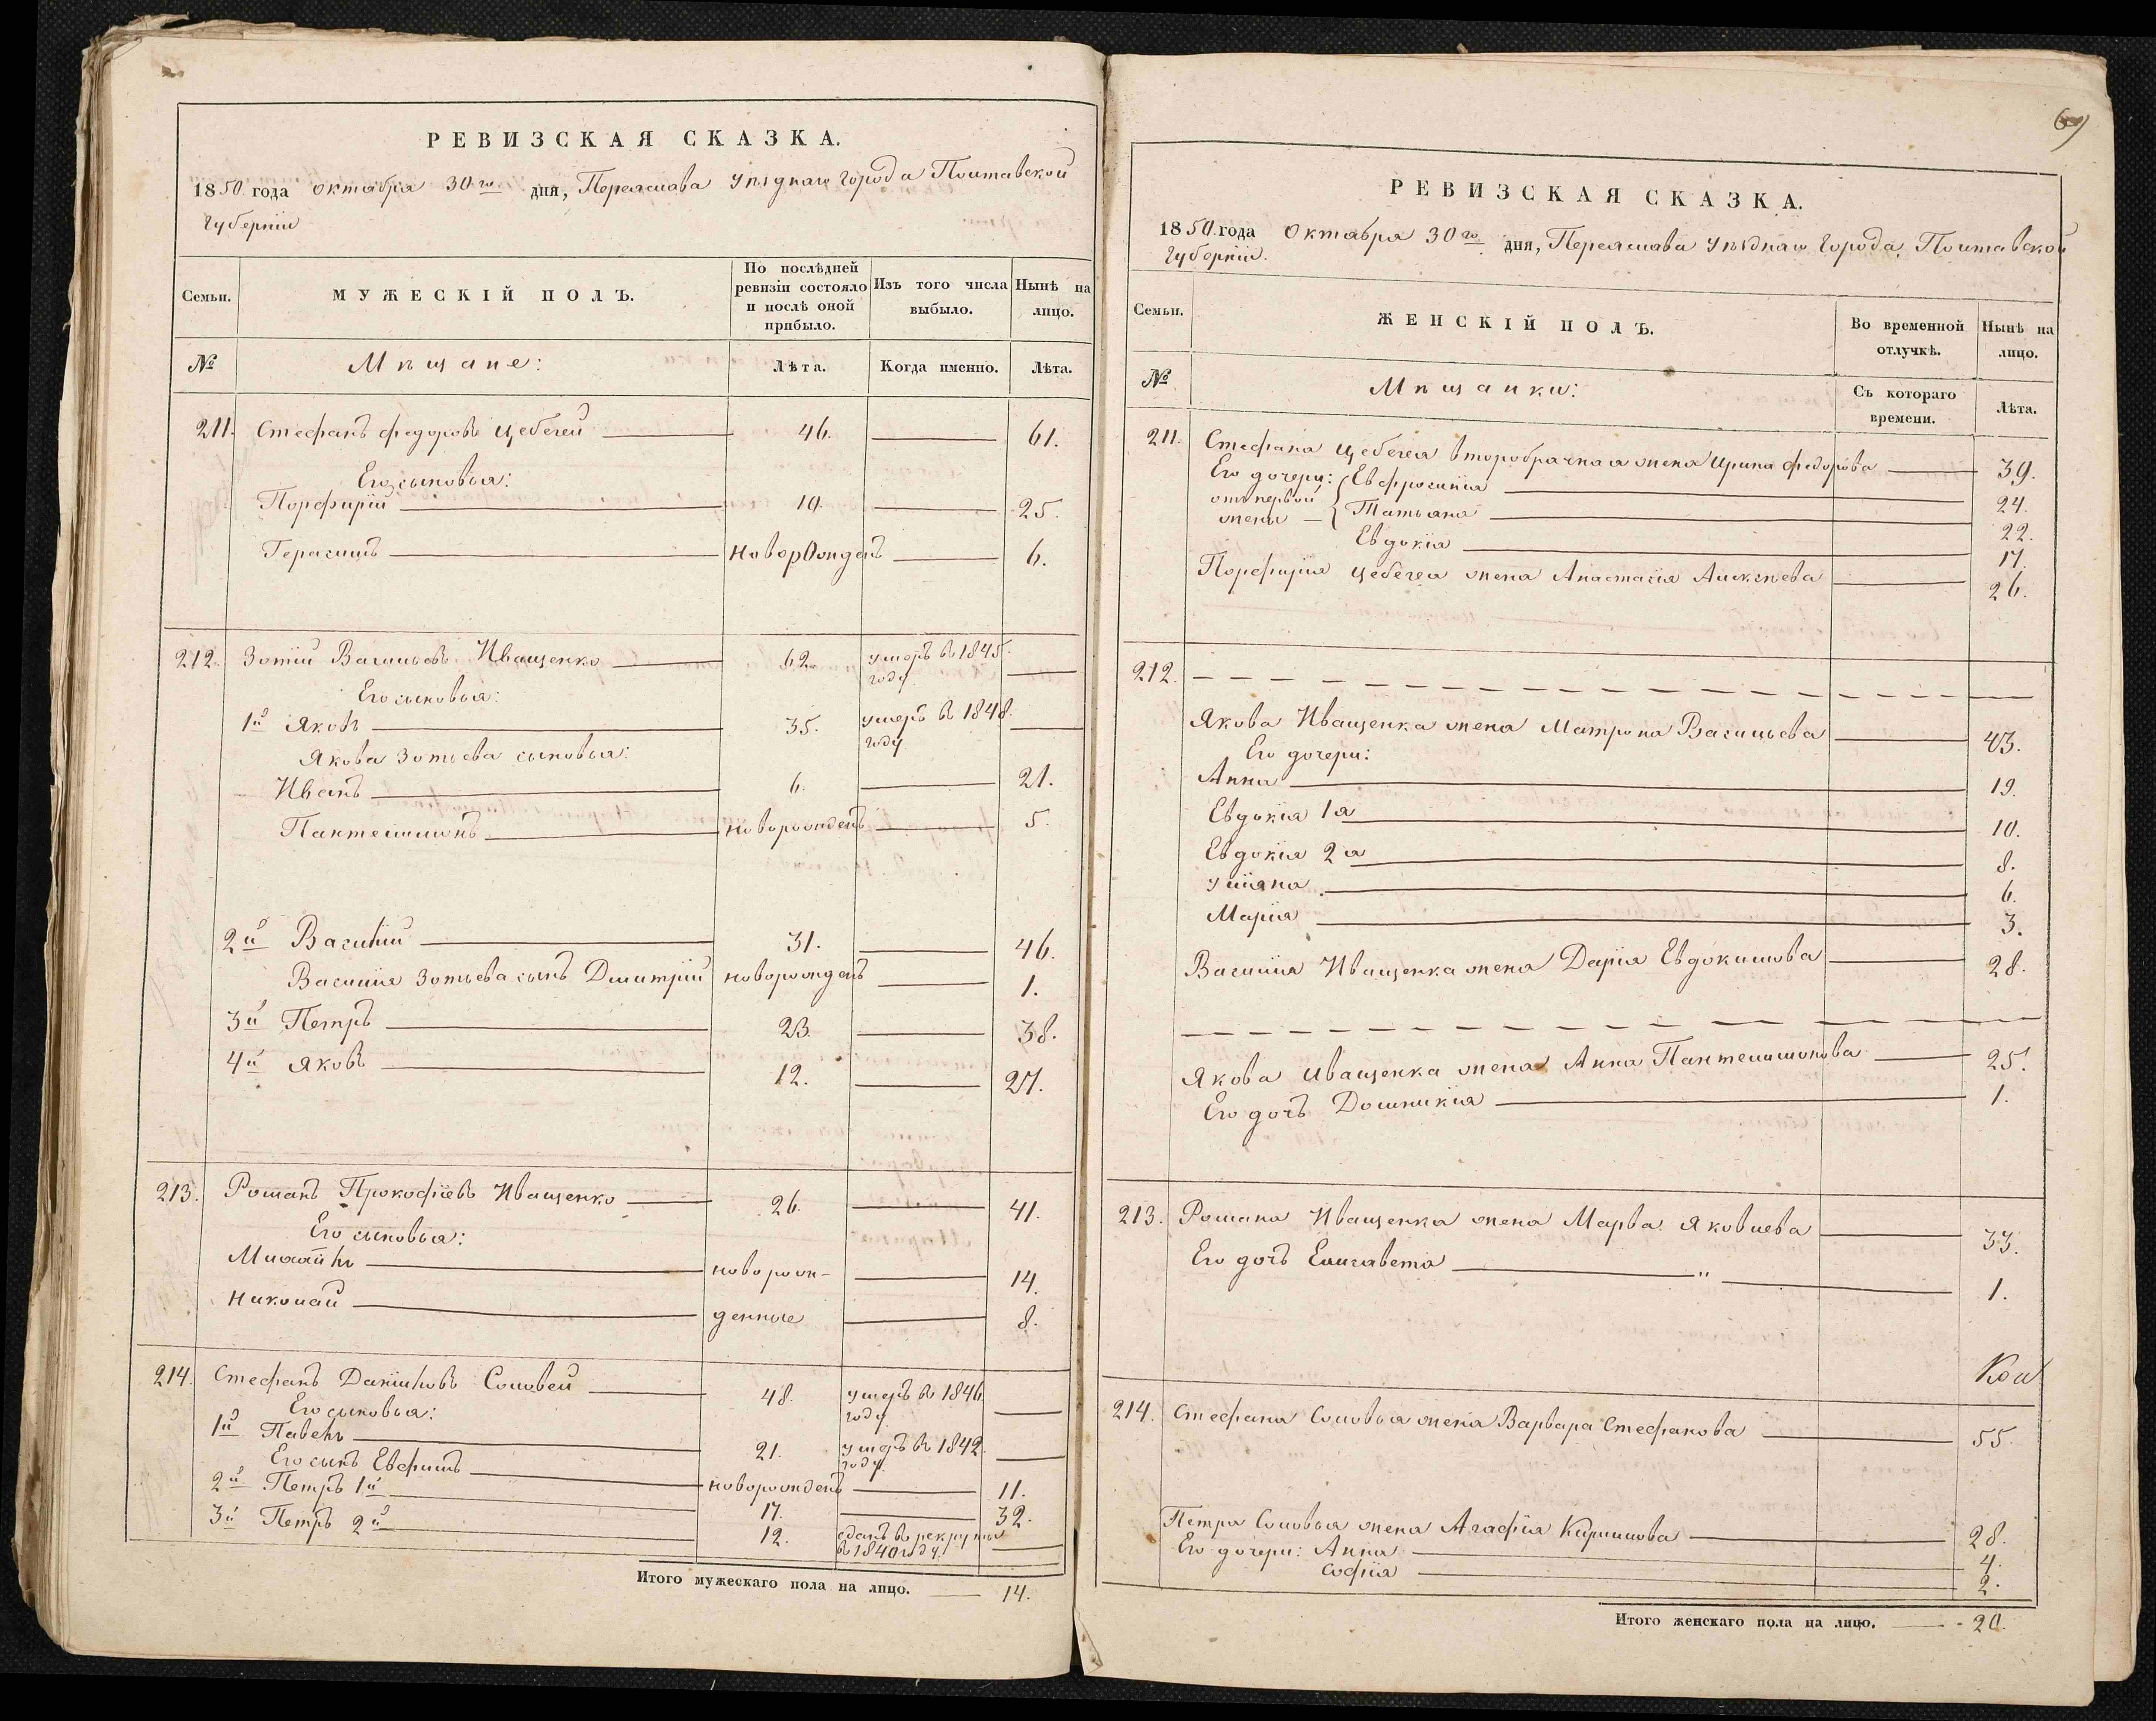 РЕВИЗСКАЯ СКАЗКА.
1850 года октября 30го дня, Переяслава уѣзднаго города Полтавской
Губерніи
Семьи.
МУЖЕСКІЙ ПОЛЪ.
По послѣдней ревизіи состояло и послѣ оной прибыло.
Изъ того числа выбыло.
Нынѣ на лицо.
№
Мѣщане:
Лѣта.
Когда именно.
Лѣта.
211. Стефанъ Федоровъ Цебегей 46. 61.
Его сыновья:
Порфирій 10. 25.
Герасимъ новорожденъ 6.
212. Зотій Васильевъ Иващенко 62. умеръ въ 1845. году
Его сыновья:
1й Яковъ 35. умеръ въ 1848. году
Якова Зотьева сыновья:
Иванъ 6. 21.
Пантелимонъ новорожденъ 5.
2й Василій 31. 46.
Василія Зотьева сынъ Дмитрій новорожденъ 1.
3й Петръ 23. 38.
4й Яковъ 12. 27.
213. Романъ Прокофіевъ Иващенко 26. 41.
Его сыновья:
Михайлъ новорож- 14.
Николай денные 8.
214. Стефанъ Даніиловъ Соловей 48. умеръ въ 1846. году
Его сыновья:
1й Павелъ 21. умеръ въ 1842. году.
Его сынъ Евфимъ новорожденъ 11.
2й Петръ 1й 17. 32.
3й Петръ 2й 12. сданъ въ рекруты въ 1840 году.
Итого мужескаго пола на лицо. 14.
69
РЕВИЗСКАЯ СКАЗКА.
1850 года Октября 30го дня, Переяслава уѣзднаго города, Полтавской
Губерніи.
Семьи.
ЖЕНСКІЙ ПОЛЪ.
Во временной отлучкѣ.
Нынѣ на лицо.
№
Мѣщанки:
Съ котораго времени.
Лѣта.
211. Стефана Цебегея второбрачная жена Ирина Федорова 39.
Его дочери: Евфросинія 24.
отъ первой жены Татьяна 22.
Евдокія 17.
Порфирія Цебегея жена Анастасія Алексѣева 26.
212.
Якова Иващенка жена Матрона Васильева 43.
Его дочери:
Анна 19.
Евдокія 1я 10.
Евдокія 2я 8.
Уліяна 6.
Марія 3.
Василія Иващенка жена Дарія Евдокимова 28.
Якова Иващенка жена Анна Пантелимонова 25.
Его дочь Домникія 1.
213. Романа Иващенка жена Марѳа Яковлева 33.
Его дочь Елисавета " 1.
214. Стефана Соловья жена Варвара Стефанова 55.
Петра Соловья жена Агафія Кирилова 28.
Его дочери: Анна 4.
Софія 2.
Итого женскаго пола на лицо. 20.